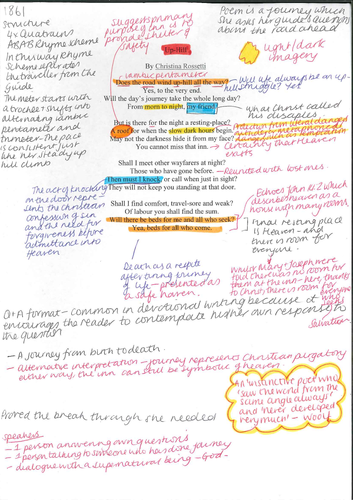 1861
Structure
4x Quatrains
ABAB Rhyme scheme
the traveller from the
Guide
The meter starts with
a trochee, shifts into
alternating iambic
pentameter and
trimeter. The pace
is consistent just
like her steady up
hill climb
suggests primary
purpose of inn is to
provide shelter &
safety
Poem is a journey which
she asks her guide questions
about the road ahead
light/dark
imagery
Up-Hill
By Christina Rossetti
iambic pentameter
Does the road wind up-hill all the way?
Yes, to the very end.
Will the day's journey take the whole long day?
From morn to night, my friend.
Will life always be an up-
hill struggle? Yes
what Christ called his
disciples
But is there for the night a resting-place?
A roof for when the slow dark hours begin.
May not the darkness hide it from my face?
You cannot miss that inn.
Certainty that Heaven
exists
Shall I meet other wayfarers at night?
Those who have gone before.
Reunited with lost ones
Then must I knock, or call when just in sight?
They will not keep you standing at that door.
The act of knocking
the door repre-
sents the Christian
confession of sin
and the need for
forgiveness before
admittance into
Heaven
Shall I find comfort, travel-sore and weak?
Of labour you shall find the sum.
Will there be beds for me and all who seek?
Yea, beds for all who come.
Echoes John 14:2 which
describes Heaven as a
home with many rooms
Final resting place
is Heaven - and
there is room for
everyone.
Death as a respite
after tiring journey
of life - presented as
a safe haven.
told there was no room for
them at the inn - here, thanks
to Christ, there is room for
everyone
who
seeks
salvation
Q+A format - common in devotional writing because it
encourages the reader to contemplate his/her own response to
the question
- A journey from birth to death.
- alternative interpretation - journey represents Christian purgatory
either way, the inn can still be symbolic of heaven
A 'instinctive poet who
'saw the world from the
same angle always'
and 'never developed
very much' - Woolf
Proved the break through she needed
speakers
- 1 person answering own questions
- 1 person talking to someone who has done journey
- dialogue with a supernatural being - God -